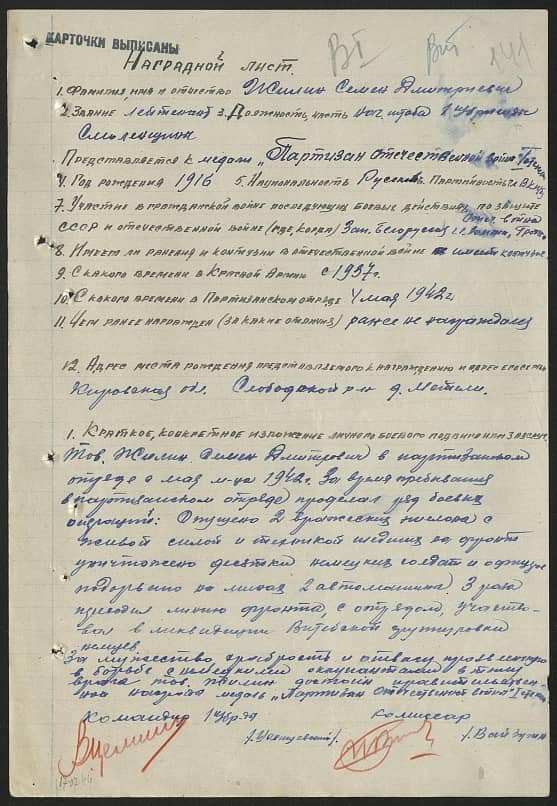 КАРТОЧКИ ВЫПИСАНЫ
141
Наградной лист.
1. Фамилия, имя и отчество Жилин Семен Дмитриевич
2. Звание лейтенант 3. Должность, часть нач. штаба 1 уд. бригады
Смоленщина
Представляется к медали „Партизан Отечественной войны" I степени
4. Год рождения 1916 5. Национальность Русский 6. Партийность
7. Участие в гражданской войне последующих боевых действиях по защите
СССР и отечественной войне (где, когда) Зап. Белоруссия
8. Имеет ли ранения и контузии в отечественной войне имеет контузию
9. С какого времени в Красной Армии с 1937 г.
10. С какого времени в Партизанском отряде 4 мая 1942 г
11. Чем ранее награжден (за какие отличия) ранее не награждался
12. Адрес места рождения представляемого к награждению и адрес его семьи
Кировская обл. Слободской р-н д. Метели.
1. Краткое, конкретное изложение личного боевого подвига или заслуг.
Тов. Жилин Семен Дмитриевич в партизанском
отряде с мая м-ца 1942 г. За время пребывания
в партизанском отряде проделал ряд боевых
операций: Спущено 2 вражеских эшелона с
живой силой и техникой шедших на фронт
уничтожено десятки немецких солдат и офицеров
подорвано на минах 2 автомашины 3 раза
переходил линию фронта, с отрядом, участво-
вал в ликвидации Витебской группировки
немцев.
За мужество храбрость и отвагу проявленную
в борьбе с немецкими оккупантами в тылу
врага тов. Жилин достоин правительствен-
ной награды медаль „Партизан Отечественной войны" I степени
Командир 1 уд. бр-ды комиссар